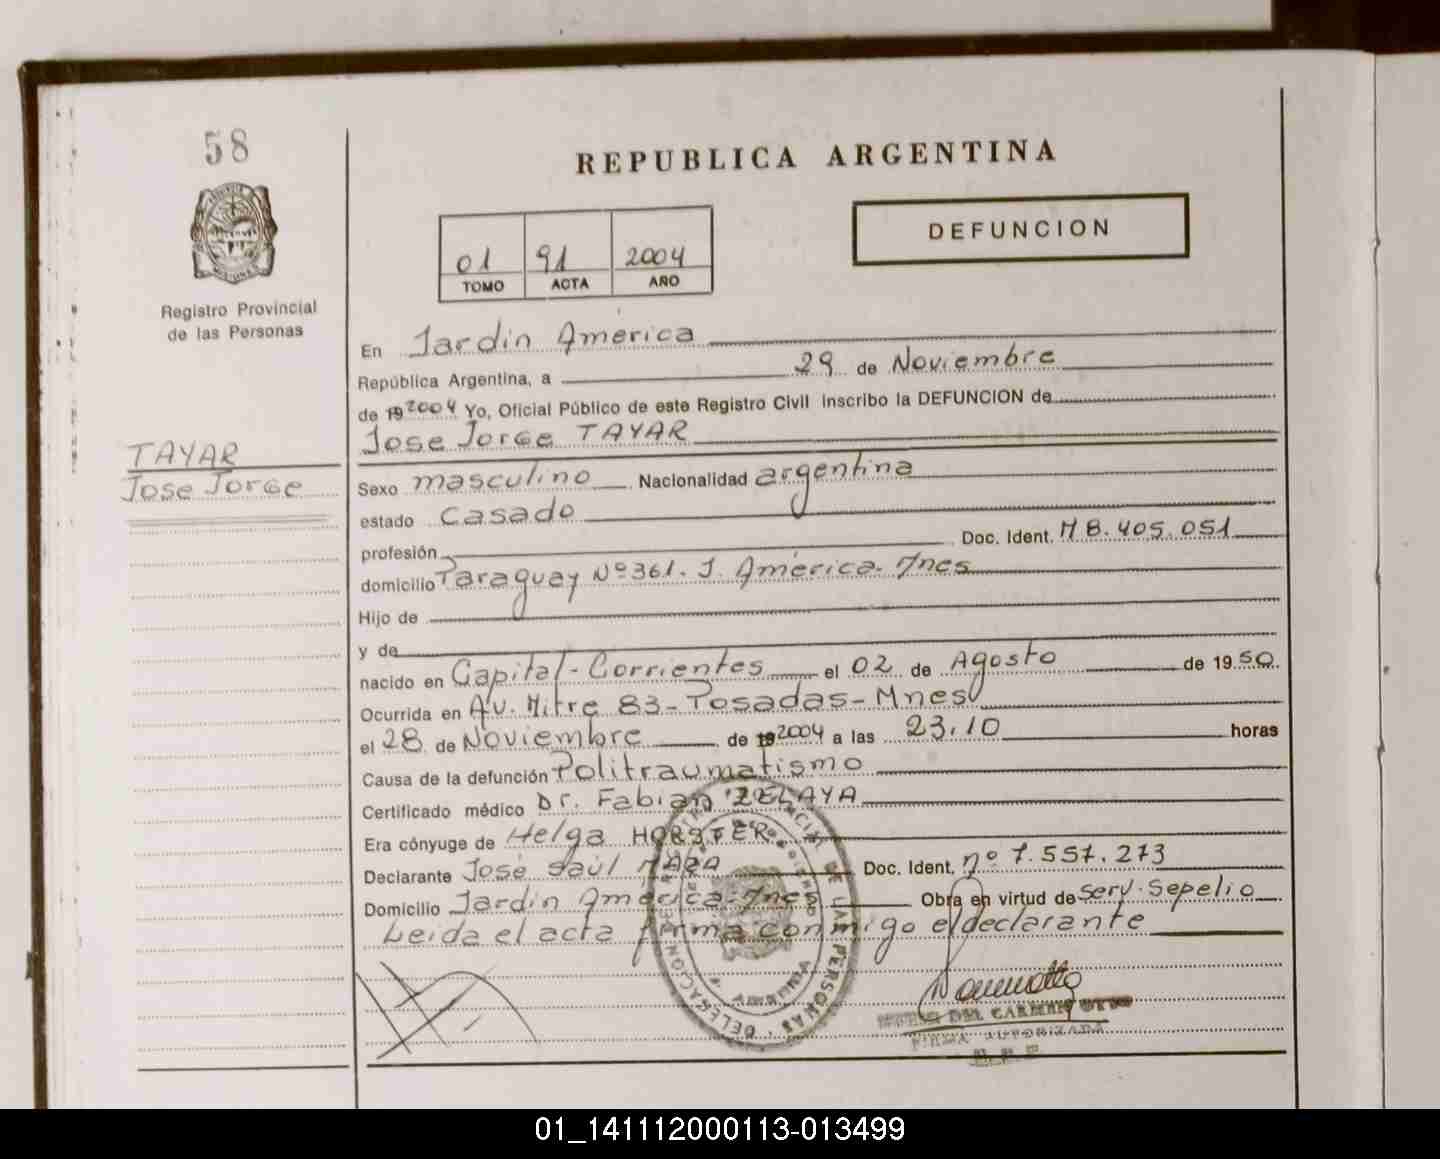 58
REPUBLICA ARGENTINA
DEFUNCION
01 91 2004
TOMO ACTA AÑO
Registro Provincial
de las Personas
TAYAR
Jose Jorge
En Jardin America
República Argentina, a 29 de Noviembre
de 19 2004 Yo, Oficial Público de este Registro Civil inscribo la DEFUNCION de
Jose Jorge TAYAR
Sexo masculino Nacionalidad argentina
estado casado
profesión Doc. Ident. M 8.405.051
domicilio Paraguay Nº 361. J. América. Mnes
Hijo de
y de
nacido en Capital-Corrientes el 02 de Agosto de 19 50
Ocurrida en Av. Mitre 83-Posadas-Mnes
el 28 de Noviembre de 19 2004 a las 23.10 horas
Causa de la defunción Politraumatismo
Certificado médico Dr. Fabian ZELAYA
Era cónyuge de Helga HORSTER
Declarante José Saúl Doc. Ident. nº 7.557.273
Domicilio Jardin America-Mnes Obra en virtud de Serv. Sepelio
Leida el acta firma conmigo el declarante
DEL CARMEN OTTO
FIRMA AUTORIZADA
DELEGACION DE LAS PERSONAS
01_141112000113-013499